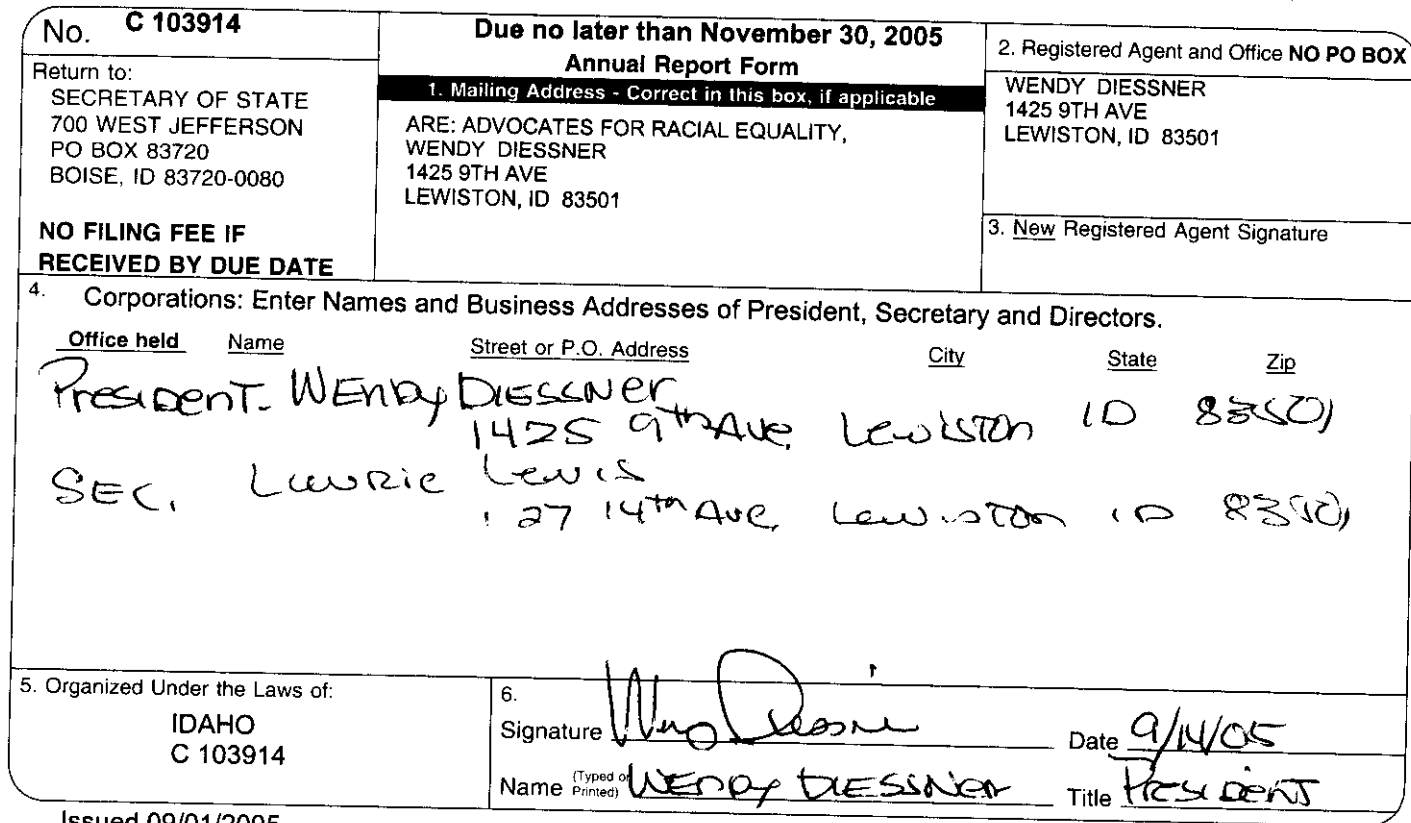 No. C 103914
Return to:
SECRETARY OF STATE
700 WEST JEFFERSON
PO BOX 83720
BOISE, ID 83720-0080
NO FILING FEE IF
RECEIVED BY DUE DATE
Due no later than November 30, 2005
Annual Report Form
1. Mailing Address - Correct in this box, if applicable
ARE: ADVOCATES FOR RACIAL EQUALITY,
WENDY DIESSNER
1425 9TH AVE
LEWISTON, ID 83501
2. Registered Agent and Office NO PO BOX
WENDY DIESSNER
1425 9TH AVE
LEWISTON, ID 83501
3. New Registered Agent Signature
4. Corporations: Enter Names and Business Addresses of President, Secretary and Directors.
Office held Name Street or P.O. Address City State Zip
President. Wendy Diessner
1425 9th Ave Lewiston ID 83501
SEC. Lewis
27 14th Ave Lewiston ID 83501
5. Organized Under the Laws of:
IDAHO
C 103914
6.
Signature Date 9/14/05
Name (Typed or Printed) WENDY DIESSNER Title President
Issued 09/01/2005